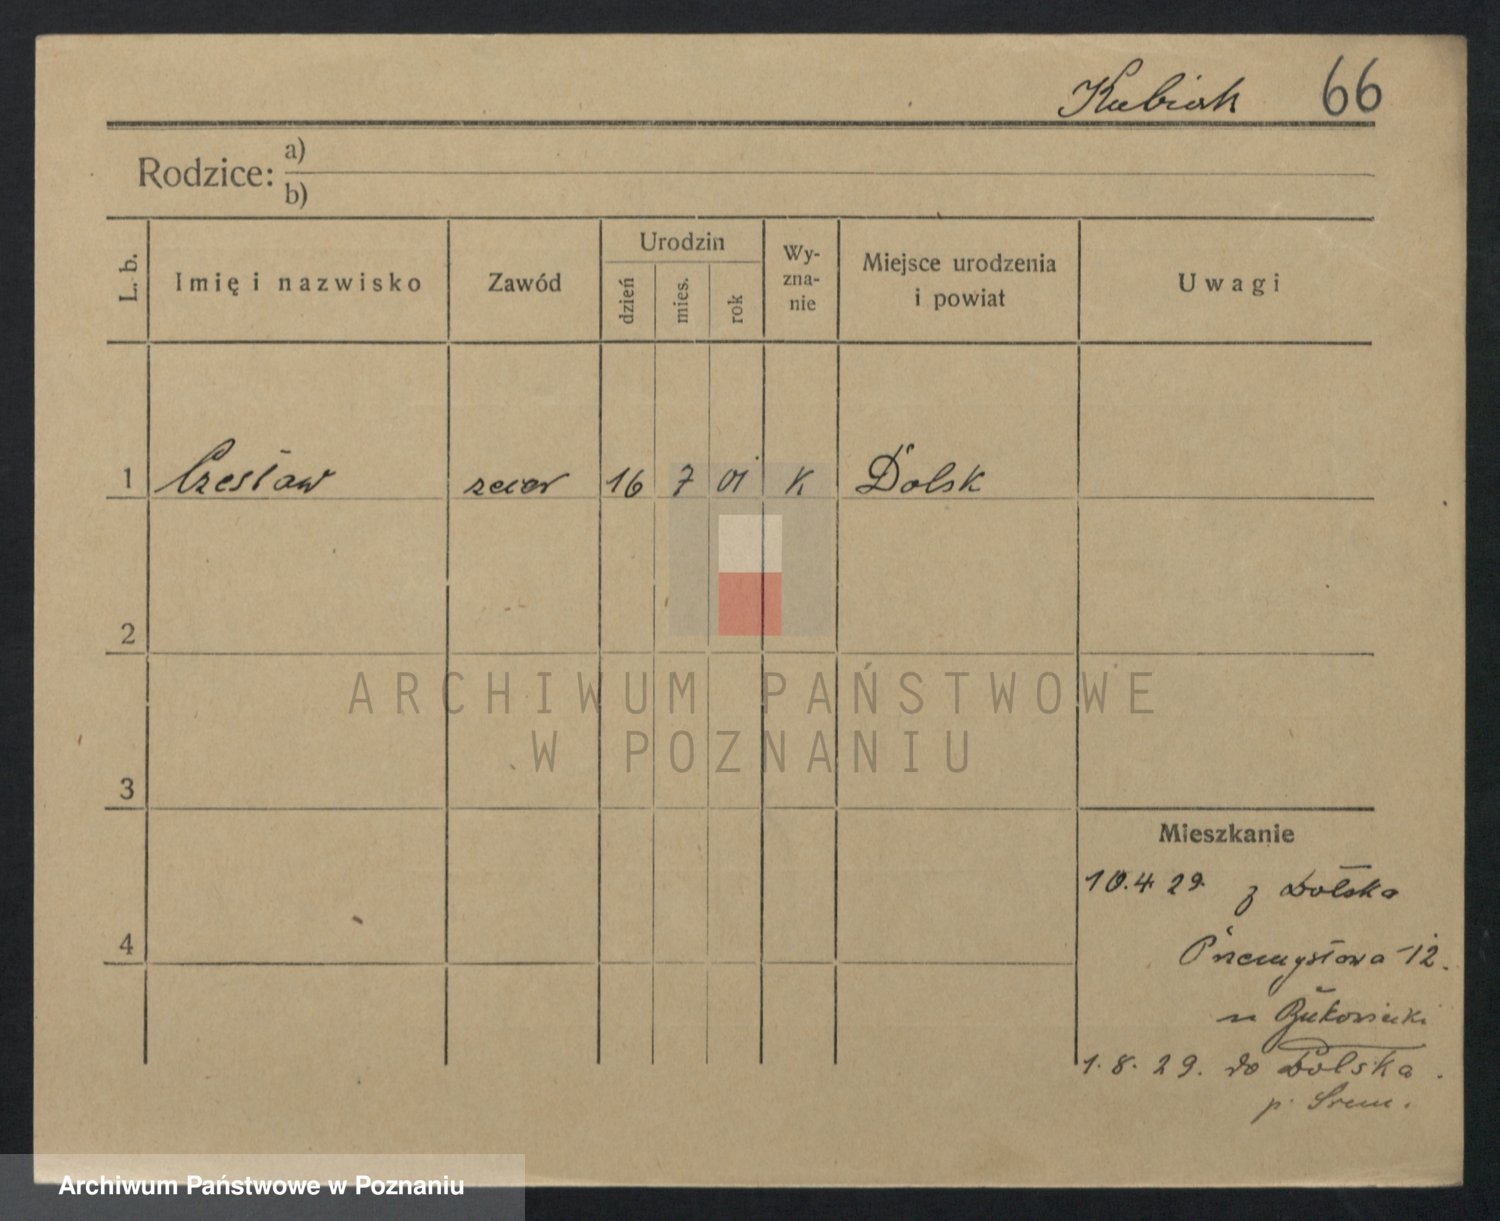 Kubiak 66
Rodzice: a)
b)
L. b. Imię i nazwisko Zawód Urodzin dzień mies. rok Wy-zna-nie Miejsce urodzenia i powiat Uwagi
1 Czesław 16 7 01 K Dolsk
2
ARCHIWUM PAŃSTWOWE
W POZNANIU
3
Mieszkanie
10.4 29. z Dolska
4
Przemysłowa 12.
1. 8. 29. do Dolska.
p. Śrem.
Archiwum Państwowe w Poznaniu